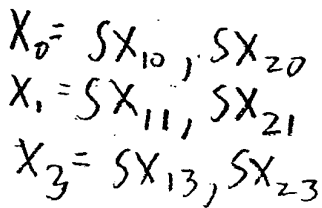 X₀= SX₁₀, SX₂₀
X₁=SX₁₁, SX₂₁
X₃= SX₁₃, SX₂₃